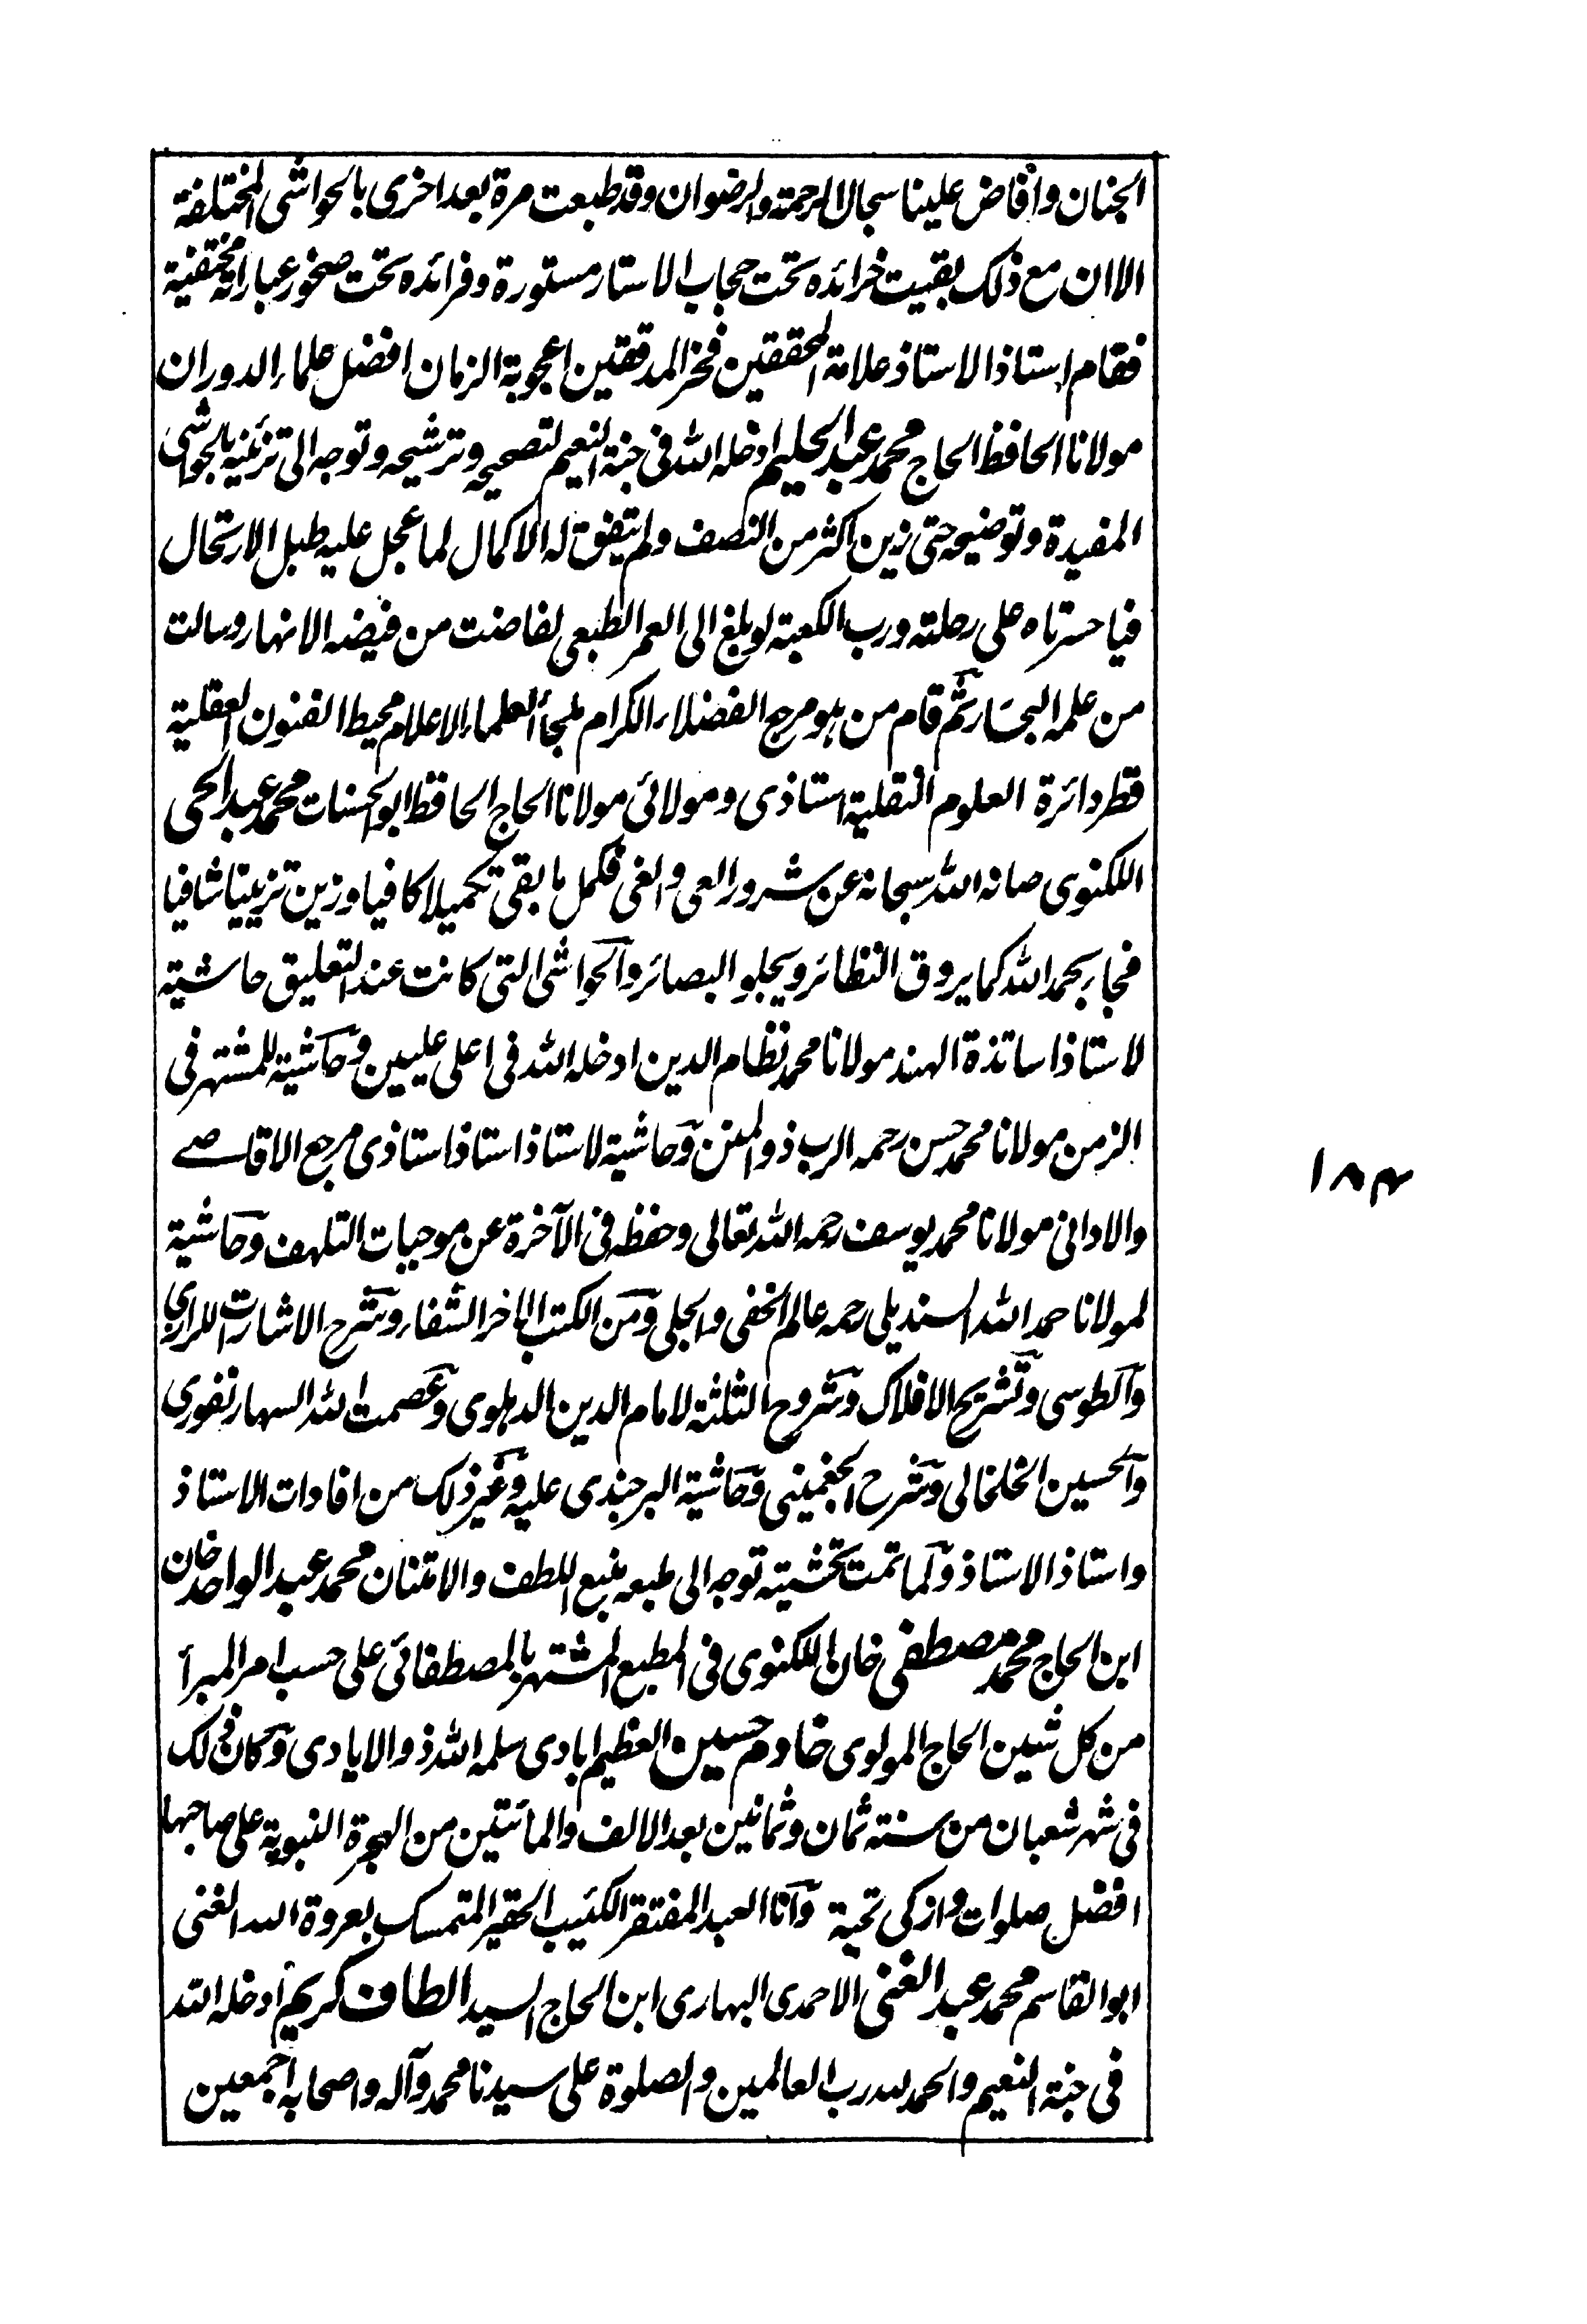 الجنان وأفاض علينا سجال الرحمة والرضوان وقد طبعت مرة بعد اخرى بالحواشى المختلفة
الا ان مع ذلك بقيت خرائده تحت حجاب الاستار مستورة وفرائده تحت صخور عباراته مختفية
فقام استاذ الاستاذ علامة المحققين فخر المدققين اعجوبة الزمان افضل علماء الدوران
مولانا الحافظ الحاج محمد عبد الحليم ادخله الله فى جنة النعيم لتصحيحه وترشيحه وتوجه الى تزئينه بالحواشى
المفيدة وتوضيحه حتى زين اكثر من النصف ولم يتفق له الاكمال لما عجل عليه طبل الارتحال
فيا حسرتاه على رحلته ورب الكعبة لو بلغ الى العمر الطبعى لفاضت من فيضه الانهار وسالت
من علمه البحار ثم قام من هو مرجع الفضلاء الكرام ملجأ العلماء الاعلام محيط الفنون العقلية
قطر دائرة العلوم النقلية استاذى ومولائى مولانا الحاج الحافظ ابو الحسنات محمد عبد الحى
اللكنوى صانه الله سبحانه عن شرور العى والغى فكمل ما بقى تكميلا كافيا وزين تزيينا شافيا
فجاء بحمد الله كما يروق النظائر ويجلو البصائر والحواشى التى كانت عند التعليق حاشية
لاستاذ اساتذة الهند مولانا محمد نظام الدين ادخله الله فى اعلى عليين وحاشية للمشتهر فى
الزمن مولانا محمد حسن رحمه الرب ذو المنن وحاشية لاستاذ استاذ استاذى مرجع الاقاصے
والادانى مولانا محمد يوسف رحمه الله تعالى وحفظه فى الآخرة عن موجبات التلهف وحاشية
لمولانا حمد الله السنديلى رحمه عالم الخفى والجلى ومن الكتب الاخر الشفاء وشرح الاشارات للرازى
والطوسى وتشريح الافلاك وشروح الثلثة لامام الدين الدهلوى وعصمت الله السهارنفورى
والحسين الخلخالى وشرح الجغمينى وحاشية البرجندى عليه وغير ذلك من افادات الاستاذ
واستاذ الاستاذ ولما تمت تحشيته توجه الى طبعه منبع اللطف والامتنان محمد عبد الواحد خان
ابن الحاج محمد مصطفى خان اللكنوى فى المطبع المشتهر بالمصطفائى على حسب امر المبرأ
من كل شين الحاج المولوى خادم حسين العظيم ابادى سلمه الله ذو الايادى وكان ذلك
فى شهر شعبان من سنة ثمان وثمانين بعد الالف والمائتين من الهجرة النبوية على صاحبها
افضل صلوات وازكى تحية وانا العبد المفتقر الكئيب الحقير المتمسك بعروة الله الغنى
ابو القاسم محمد عبد الغنى الاحمدى البهارى ابن الحاج السيد الطاف كريم أدخله الله
فى جنة النعيم والحمد لله رب العالمين والصلوة على سيدنا محمد وآله واصحابه اجمعين
۱۸۴